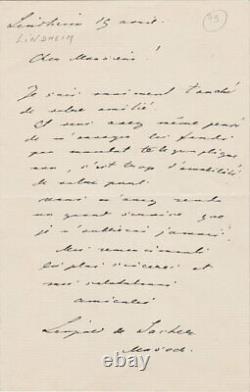 Lindheim 19 août.
LINDHEIM
93
Cher Monsieur!
Je suis vraiment touché
de votre amitié!
Et vous avez même pensé
de m'envoyer les fonds
par mandat télégraphique
non, c'est trop d'amabilité
de votre part
vous m'avez rendu
un grand service que
je n'oublierai jamais!
Mes remerciements
les plus sincères et
mes salutations
amicales
Leopold de Sacher
Masoch.